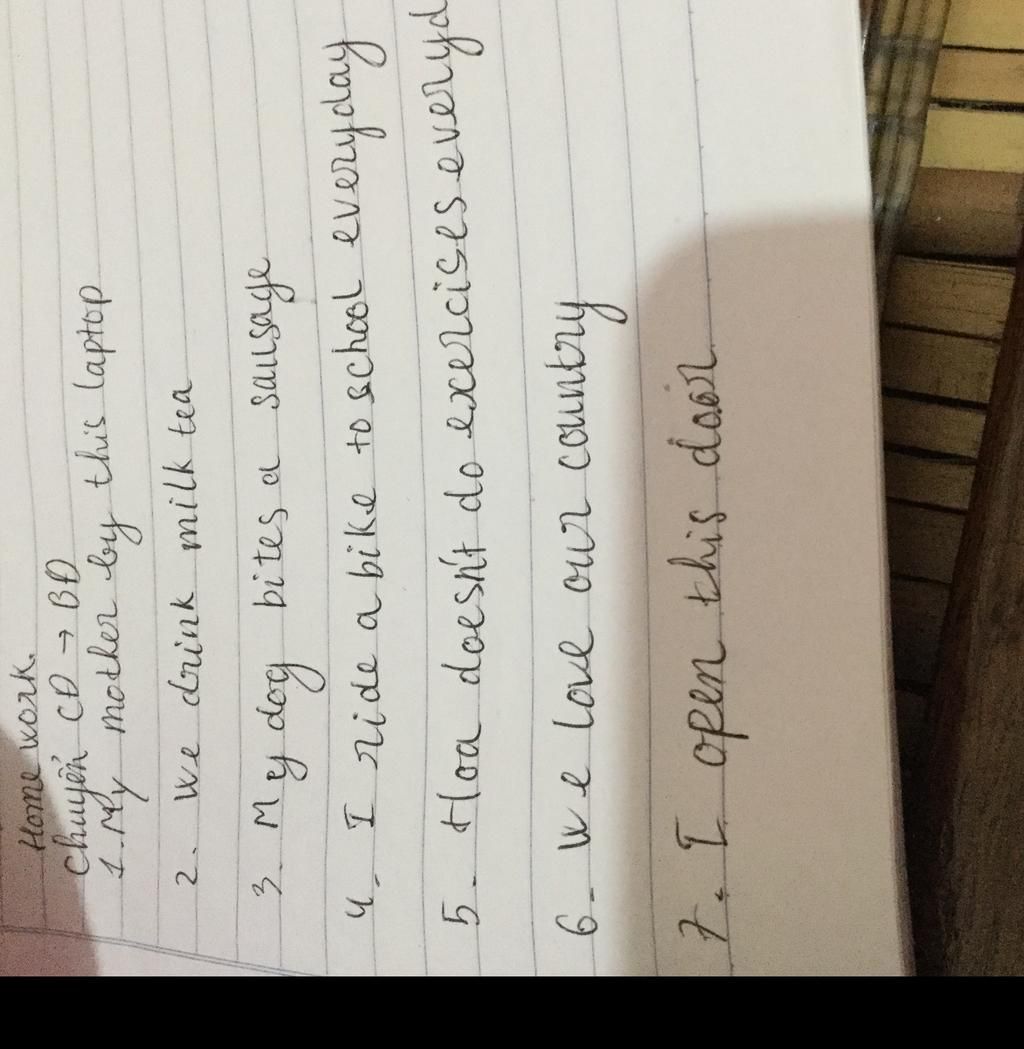 Home work.
Chuyển CĐ → BĐ
1. My mother by this laptop
2. We drink milk tea
3. My dog bites a sausage
4. I ride a bike to school everyday
5. Hoa doesn't do exercises everyd
6. We love our country
7. I open this door